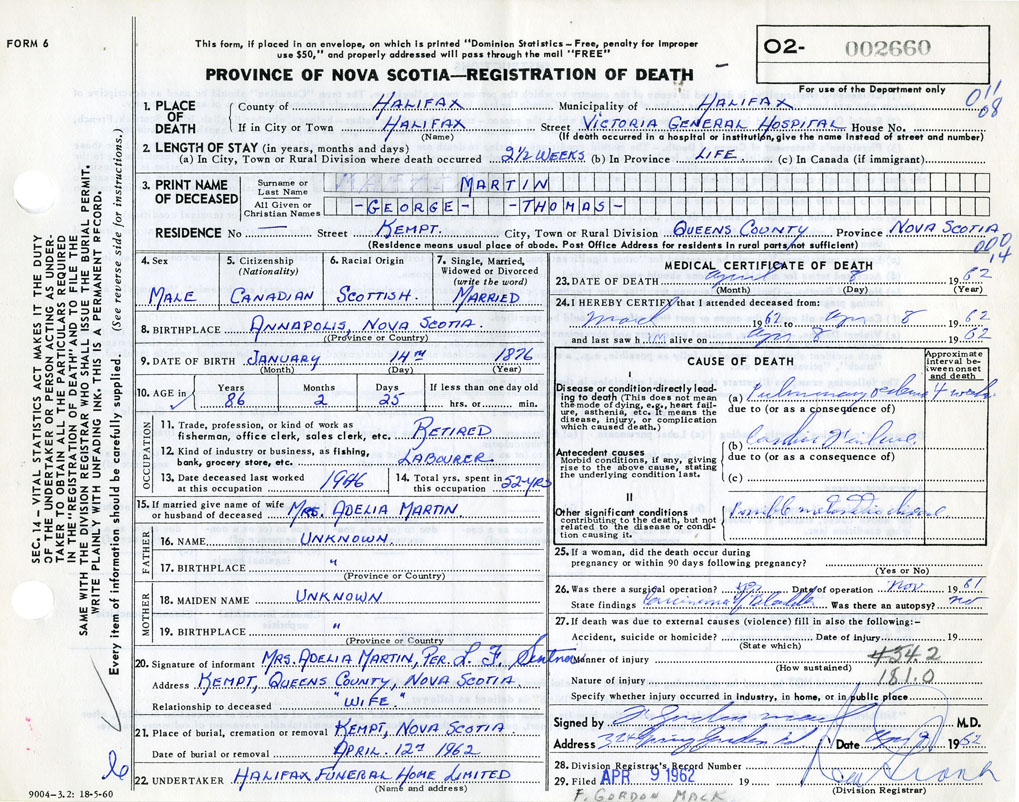 FORM 6
This form, if placed in an envelope, on which is printed "Dominion Statistics – Free, penalty for improper
use $50," and properly addressed will pass through the mail "FREE"
PROVINCE OF NOVA SCOTIA—REGISTRATION OF DEATH
O2- 002660
For use of the Department only
011
08
1. PLACE OF DEATH
County of HALIFAX Municipality of HALIFAX
If in City or Town HALIFAX Street VICTORIA GENERAL HOSPITAL House No.
(Name) (If death occurred in a hospital or institution, give the name instead of street and number)
2. LENGTH OF STAY (in years, months and days)
(a) In City, Town or Rural Division where death occurred 2½ WEEKS (b) In Province LIFE (c) In Canada (if immigrant)
3. PRINT NAME OF DECEASED
Surname or Last Name MARTIN
All Given or Christian Names -GEORGE- -THOMAS-
RESIDENCE No — Street KEMPT. City, Town or Rural Division QUEENS COUNTY Province NOVA SCOTIA
(Residence means usual place of abode. Post Office Address for residents in rural parts not sufficient)
000
14
4. Sex MALE
5. Citizenship (Nationality) CANADIAN
6. Racial Origin SCOTTISH.
7. Single, Married, Widowed or Divorced (write the word) MARRIED
8. BIRTHPLACE ANNAPOLIS, NOVA SCOTIA.
(Province or Country)
9. DATE OF BIRTH JANUARY 14TH 1876
(Month) (Day) (Year)
10. AGE in Years 86 Months 2 Days 25 If less than one day old hrs. or min.
OCCUPATION
11. Trade, profession, or kind of work as fisherman, office clerk, sales clerk, etc. RETIRED
12. Kind of industry or business, as fishing, bank, grocery store, etc. LABOURER.
13. Date deceased last worked at this occupation 1946
14. Total yrs. spent in this occupation 52-YRS
15. If married give name of wife or husband of deceased MRS. ADELIA MARTIN
FATHER
16. NAME UNKNOWN.
17. BIRTHPLACE "
(Province or Country)
MOTHER
18. MAIDEN NAME UNKNOWN
19. BIRTHPLACE "
(Province or Country
20. Signature of informant MRS. ADELIA MARTIN, PER. L. F.
Address KEMPT, QUEENS COUNTY, NOVA SCOTIA
Relationship to deceased "WIFE."
21. Place of burial, cremation or removal KEMPT, NOVA SCOTIA
Date of burial or removal APRIL. 12TH 1962
22. UNDERTAKER HALIFAX FUNERAL HOME LIMITED
(Name and address)
9004-3.2: 18-5-60
MEDICAL CERTIFICATE OF DEATH
23. DATE OF DEATH April 8 1962
(Month) (Day) (Year)
24. I HEREBY CERTIFY that I attended deceased from:
1962 to Apr 8 1962
and last saw him alive on Apr 8 1962
CAUSE OF DEATH
Approximate interval between onset and death
I
Disease or condition directly leading to death (This does not mean the mode of dying, e.g., heart failure, asthenia, etc. It means the disease, injury, or complication which caused death.)
(a) Pulmonary edema 4 weeks
due to (or as a consequence of)
Antecedent causes
Morbid conditions, if any, giving rise to the above cause, stating the underlying condition last.
(b) Cardiac Failure
due to (or as a consequence of)
(c)
II
Other significant conditions
contributing to the death, but not related to the disease or condition causing it.
Possible metastatic disease
25. If a woman, did the death occur during
pregnancy or within 90 days following pregnancy?
(Yes or No)
26. Was there a surgical operation? yes Date of operation Nov 1961
State findings Carcinoma of Bladder Was there an autopsy? no
27. If death was due to external causes (violence) fill in also the following:-
Accident, suicide or homicide? Date of injury 19
(State which)
Manner of injury 434.2
(How sustained)
Nature of injury 181.0
Specify whether injury occurred in industry, in home, or in public place
Signed by F. Gordon Mack M.D.
Address Spring Garden Rd Date Apr 9 1962
28. Division Registrar's Record Number
29. Filed APR 9 1962 19
(Division Registrar)
F. GORDON MACK
SEC. 14 – VITAL STATISTICS ACT MAKES IT THE DUTY
OF THE UNDERTAKER OR PERSON ACTING AS UNDER-
TAKER TO OBTAIN ALL THE PARTICULARS REQUIRED
IN THE "REGISTRATION OF DEATH" AND TO FILE THE
SAME WITH THE DIVISION REGISTRAR WHO SHALL ISSUE THE BURIAL PERMIT.
WRITE PLAINLY WITH UNFADING INK. THIS IS A PERMANENT RECORD.
Every item of information should be carefully supplied. (See reverse side for instructions.)